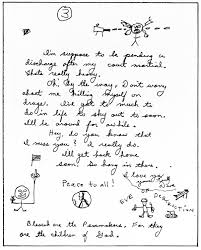 3
I'm suppose to be pending a
discharge after my court martial.
Thats really heavy.
Oh! By the way, Don't worry
about me killing myself on
drugs. I've got to much to
do in life to sky out to soon.
I'll be around for awhile.
Hey, do you know that
I miss you? I really do.
I'll get back home
soon. So hang in there.
I love you
Peace to all!
EVE OF DESTRUCTION
Blessed are the Peacemakers. For they
are the children of God.